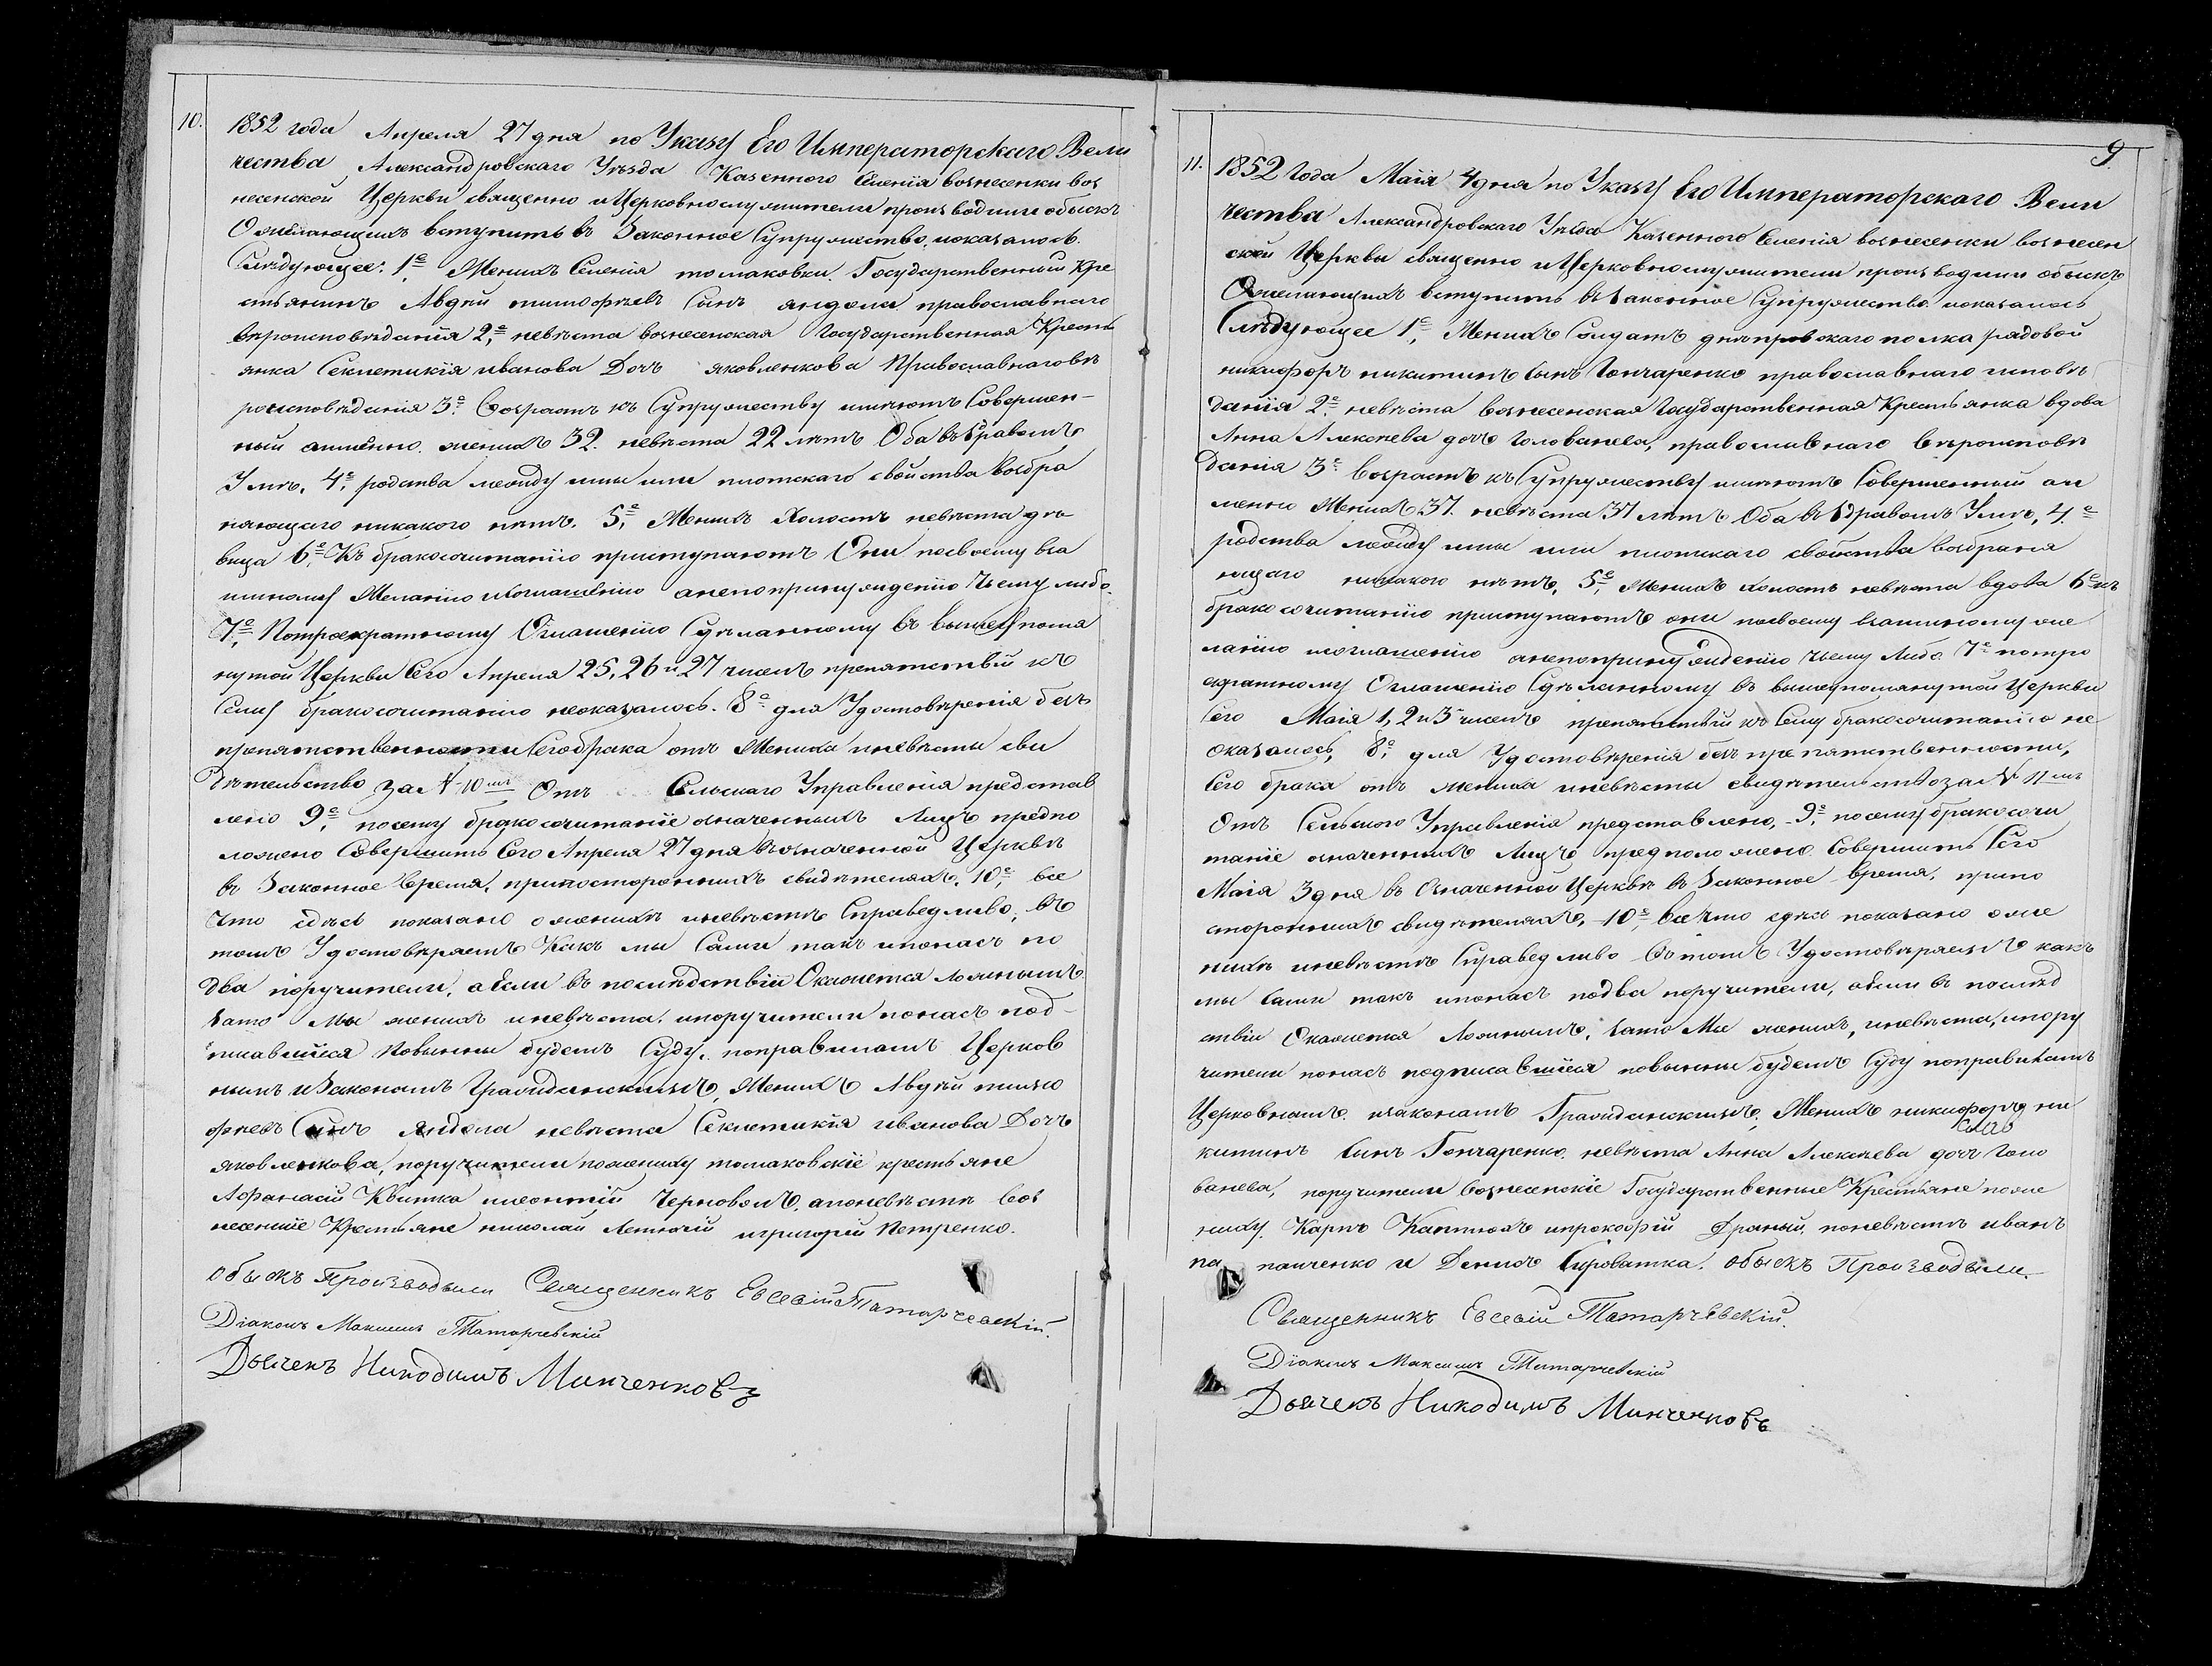 10.
1852 года Апреля 27 дня по Указу Его Императорскаго Вели
чества Александровскаго Уѣзда Казенного Селенія вознесенки воз
несенской Церкви священно и Церковнослужители производили обыскъ
О желающихъ вступить въ Законное Супружество, показалось.
Слѣдующее: 1е Женихъ Селенія томаковки Государственный Кре
стьянинъ Авдѣй тимофѣевъ Сынъ яндола православнаго
вѣроисповѣданія 2е, невѣста вознесенская Государственная Кресть
янка Секлетикія иванова Дочь яковленкова Православнаго вѣ
роисповѣданія 3е. Возрастъ къ Супружеству имѣютъ Совершен-
ный аименно. женихъ 32. невѣста 22 лѣтъ Оба въ Здравомъ
Умѣ. 4е, родства между ими или плотскаго свойства возбра
няющаго никакого нѣтъ. 5е, Женихъ Холостъ невѣста дѣ-
вица 6е, Къ бракосочитанію приступаютъ Они посвоему вза
имному Желанію исоглашенію анепопринужденію Чьему либо.
7е, Потроекратному Оглашенію Сдѣланному въ вышеупомя
нутой Церкви Сего Апреля 25, 26 и 27 числъ препятствій къ
Сему бракосочитанію неоказалось. 8е для Удостовѣренія безъ
препятственности Сего брака отъ Жениха иневѣсты сви
дѣтельство за № 10мъ Отъ Сельскаго Управленія представ
лено 9е, посему бракосочитаніе означенныхъ Лицъ предпо
ложено Совершить Сего Апреля 27 дня въ означенной Церквѣ
въ Законное время, припосторонныхъ свидѣтеляхъ. 10е, все
что здѣсь показано оженихѣ иневѣстѣ Справедливо, въ
томъ Удостовѣряемъ Какъ мы Сами такъ ипонасъ по
два поручители, аЕсли въ послѣдствіи Окажется Ложнымъ
зато Мы женихъ иневѣста. ипоручители понасъ под-
писавшіеся Повынны будемъ Суду, поправиламъ Церков
нымъ иЗаконамъ Гражданскимъ, Женихъ Авдѣй тимо
фѣевъ Сынъ Яндола невѣста Секлетикія иванова Дочь
яковленкова, поручители пожениху томаковскіе крестьяне
Афанасій Квитка илеонтій Черноволъ, апоневѣстѣ воз
несенскіе Крестьяне николай Летючій игригорій Петренко.
обыскъ Производыли Священникъ Евсевій Татарчевскій.
Діаконъ Максимъ Татарчевскій
Дьячекъ Никодимъ Минченковъ
9
11.
1852 Года Маія 4 дня по Указу Его Императорскаго Вели
чества Александровскаго Уѣзда Казенного Селенія вознесенки вознесен
ской Церквы священно и Церковнослужители производили обыскъ
О желающихъ вступить въ Законное Супружество показалось
Слѣдующее 1е, Женихъ Солдатъ днѣпровскаго полка рядовой
никифоръ никитинъ Сынъ Гончаренко православнаго исповѣ
данія 2е, невѣста вознесенская Государственная Крестьянка вдова
Анна Алексѣева дочь Голованева, православнаго вѣроисповѣ
данія 3е. возрастъ къ Супружеству имѣютъ Совершенный аи
менно Женихъ 37. невѣста 37 лѣтъ Оба въ Здравомъ Умѣ, 4.е
родства между ими или плотскаго свойства возбраня
ющаго никакого нѣтъ, 5е, Женихъ холостъ невѣста вдова 6е къ
бракосочитанію приступаютъ они посвоему взаимному же
ланію исоглашенію анепопринужденію чьему Либо. 7е потро
екратному Оглашенію Сдѣланному въ вышеупомянутой Церкви
Сего Маія 1, 2 и 3 числъ препятствій къ Сему бракосочитанію не
оказалось, 8е, для Удостовѣренія безпрепятственности,
Сего брака отъ жениха иневѣсты свидѣтельство за № 11мъ
Отъ Сельского Управленія представлено, 9е, посему бракосочи
таніе означенныхъ Лицъ предположено Совершить Сего
Маія 3 дня въ Означенной Церквѣ въ Законное время, припо
стороннихъ свидѣтеляхъ, 10е, все что здѣсь показано оже
нихѣ иневѣстѣ Справедливо въ томъ Удостовѣряемъ какъ
мы Сами такъ ипонасъ подва поручители, аЕсли въ послѣд
ствіи Окажется Ложнымъ, зато Мы женихъ, иневѣста, ипору
чители понасъ подписавшіеся повынны будемъ Суду поправиламъ
Церковнымъ, изаконамъ Гражданскимъ, Женихъ никифоръ ни
китинъ Сынъ Гончаренко. невѣста Анна Алексѣева дочь Голо
ванева, поручители вознесенскіе Государственные Крестьяне поже
ниху. Карпъ Каптюхъ ипрокофій Драный. поневѣстѣ иванъ
па панченко и Денисъ Сироватка. обыскъ Производыли.
Священникъ Евсевій Татарчевскій.
Діаконъ Максимъ Татарчевскій
Дьячекъ Никодимъ Минченковъ